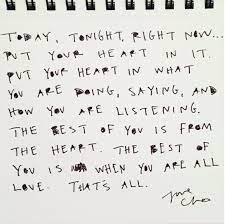 TODAY, TONIGHT, RIGHT NOW...
PUT YOUR HEART IN IT.
PUT YOUR HEART IN WHAT
YOU ARE DOING, SAYING, AND
HOW YOU ARE LISTENING.
THE BEST OF YOU IS FROM
THE HEART. THE BEST OF
YOU IS WHEN YOU ARE ALL
LOVE. THAT'S ALL.